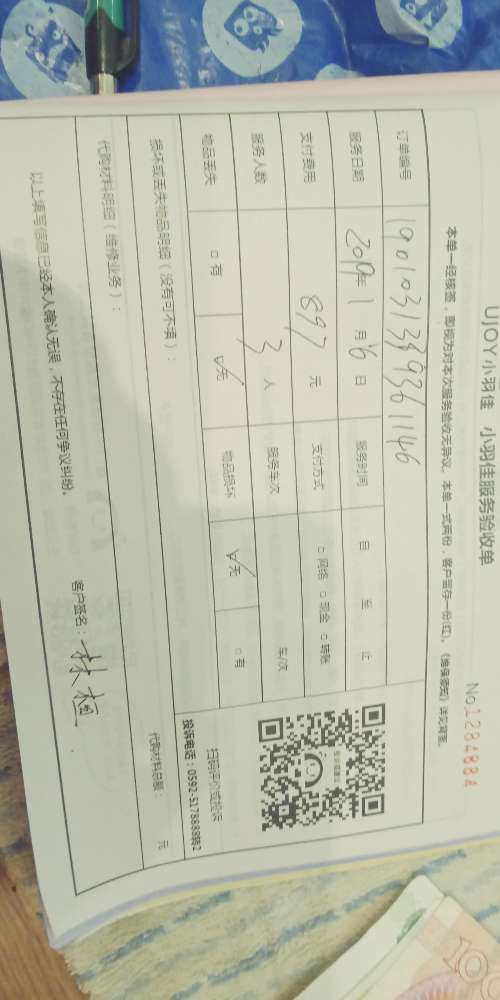 UJOY小羽佳 小羽佳服务验收单
No.1284884
本单一经核签，即视为对本次服务验收无异议。本单一式两份，客户留存一份(红)。《维保须知》详见背面
订单编号 19010313393361146
服务日期 2019年1月6日 服务时间 自 至 止
支付费用 897 元 支付方式 □网络 □现金 □转账
服务人数 3 人 服务车次 车次
物品丢失 □有 √无 物品损坏 √无 □有
扫码评价或投诉
投诉电话：0592-5178888转2
损坏或丢失物品明细（没有可不填）：
代购材料明细（维修业务）： 代购材料总额： 元
以上填写信息已经本人确认无误，不存在任何争议纠纷。
客户签名：林
100